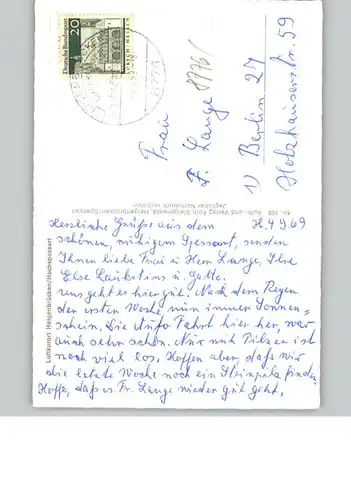 Deutsche Bundespost
20
LORSCH HESSEN
8776
Frau
L. Lange
1) Berlin 27
Holzhauserstr. 59
Nr. 198 Aufn. und Verlag Foto Steigerwald, Heigenbrücken/Spessart
Jeglicher Nachdruck verboten
Luftkurort Heigenbrücken/Hochspessart
H. 4.9.69
Herzliche Grüße aus dem
schönen, ruhigem Spessart, senden
Ihnen liebe Frau u. Herr Lange, Ihre
Else u. Gatte.
uns geht es hier gut. Nach dem Regen
der ersten Woche nun immer Sonnen=
schein. Die Auto Fahrt hier her, war
auch sehr schön. Nur mit Pilzen ist
noch viel los. Hoffen aber, daß wir
die letzte Woche noch ein Steinpilz finden.
Hoffe, daß es Fr. Lange wieder gut geht.